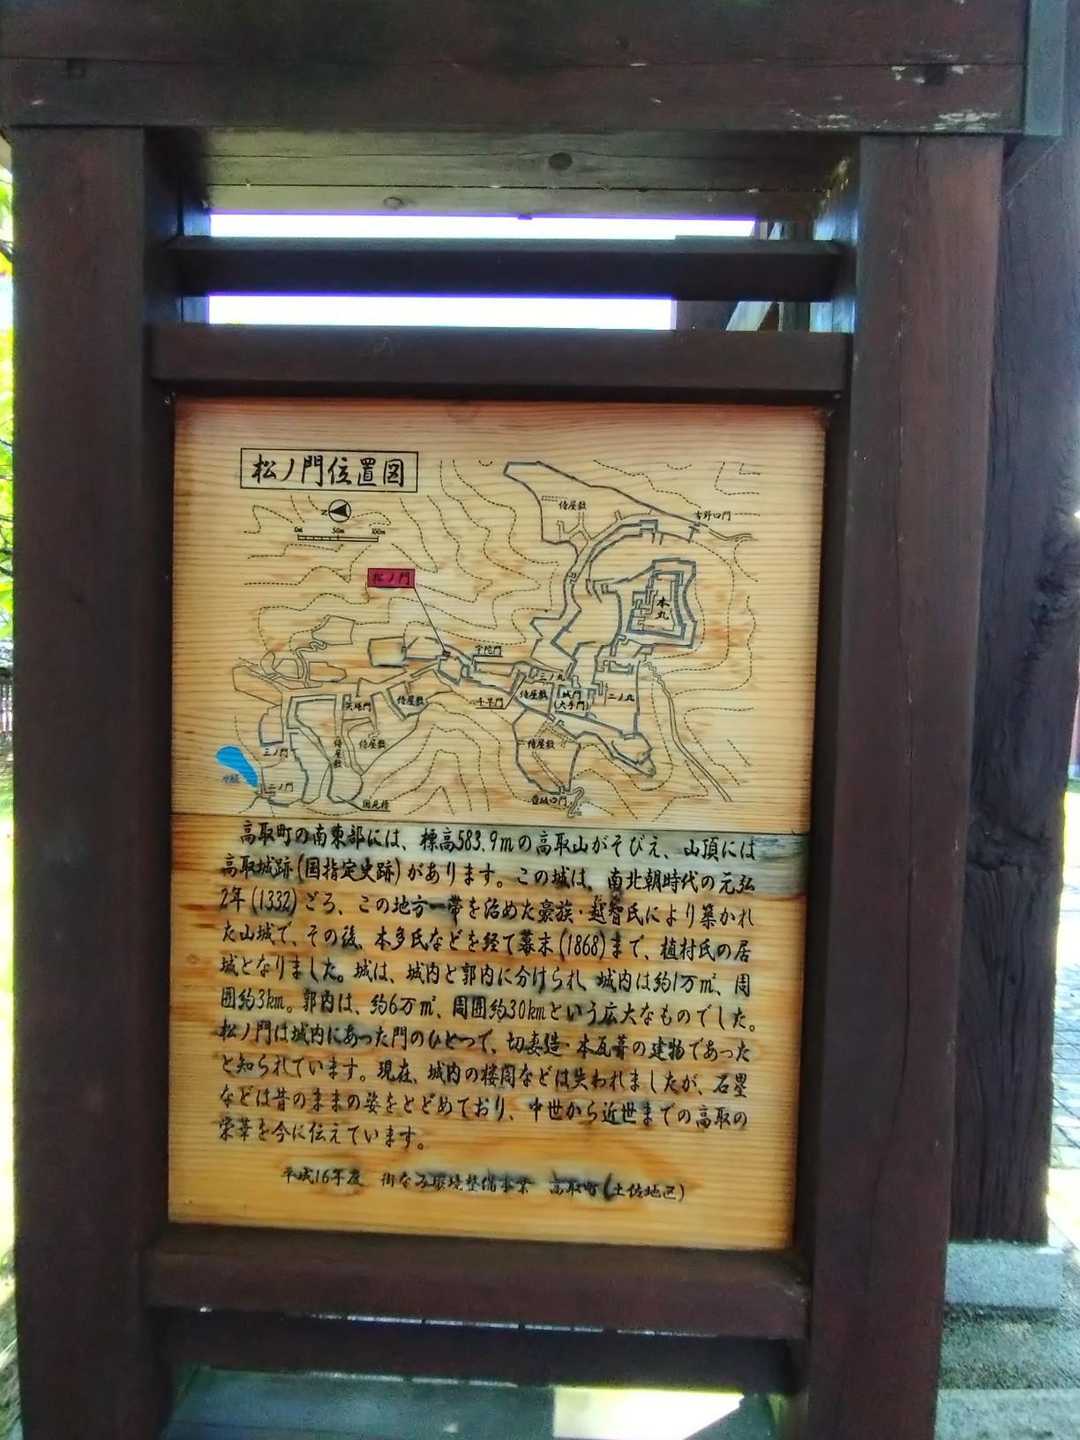 松ノ門位置図
N
0m 50m 100m
侍屋敷
吉野口門
松ノ門
本丸
宇陀門
三ノ丸
侍屋敷
城門
(大手門)
二ノ丸
千早門
侍屋敷
矢場門
侍屋敷
侍屋敷
侍屋敷
三ノ門
水堀
二ノ門
国見櫓
壺坂口門
高取町の南東部には、標高583.9mの高取山がそびえ、山頂には
高取城跡(国指定史跡)があります。この城は、南北朝時代の元弘
2年(1332)ごろ、この地方一帯を治めた豪族・越智氏により築かれ
た山城で、その後、本多氏などを経て幕末(1868)まで、植村氏の居
城となりました。城は、城内と郭内に分けられ、城内は約1万㎡、周
囲約3km。郭内は、約6万㎡、周囲約30kmという広大なものでした。
松ノ門は城内にあった門のひとつで、切妻造・本瓦葺の建物であった
と知られています。現在、城内の楼閣などは失われましたが、石塁
などは昔のままの姿をとどめており、中世から近世までの高取の
栄華を今に伝えています。
平成16年度 街なみ環境整備事業 高取町(土佐地区)